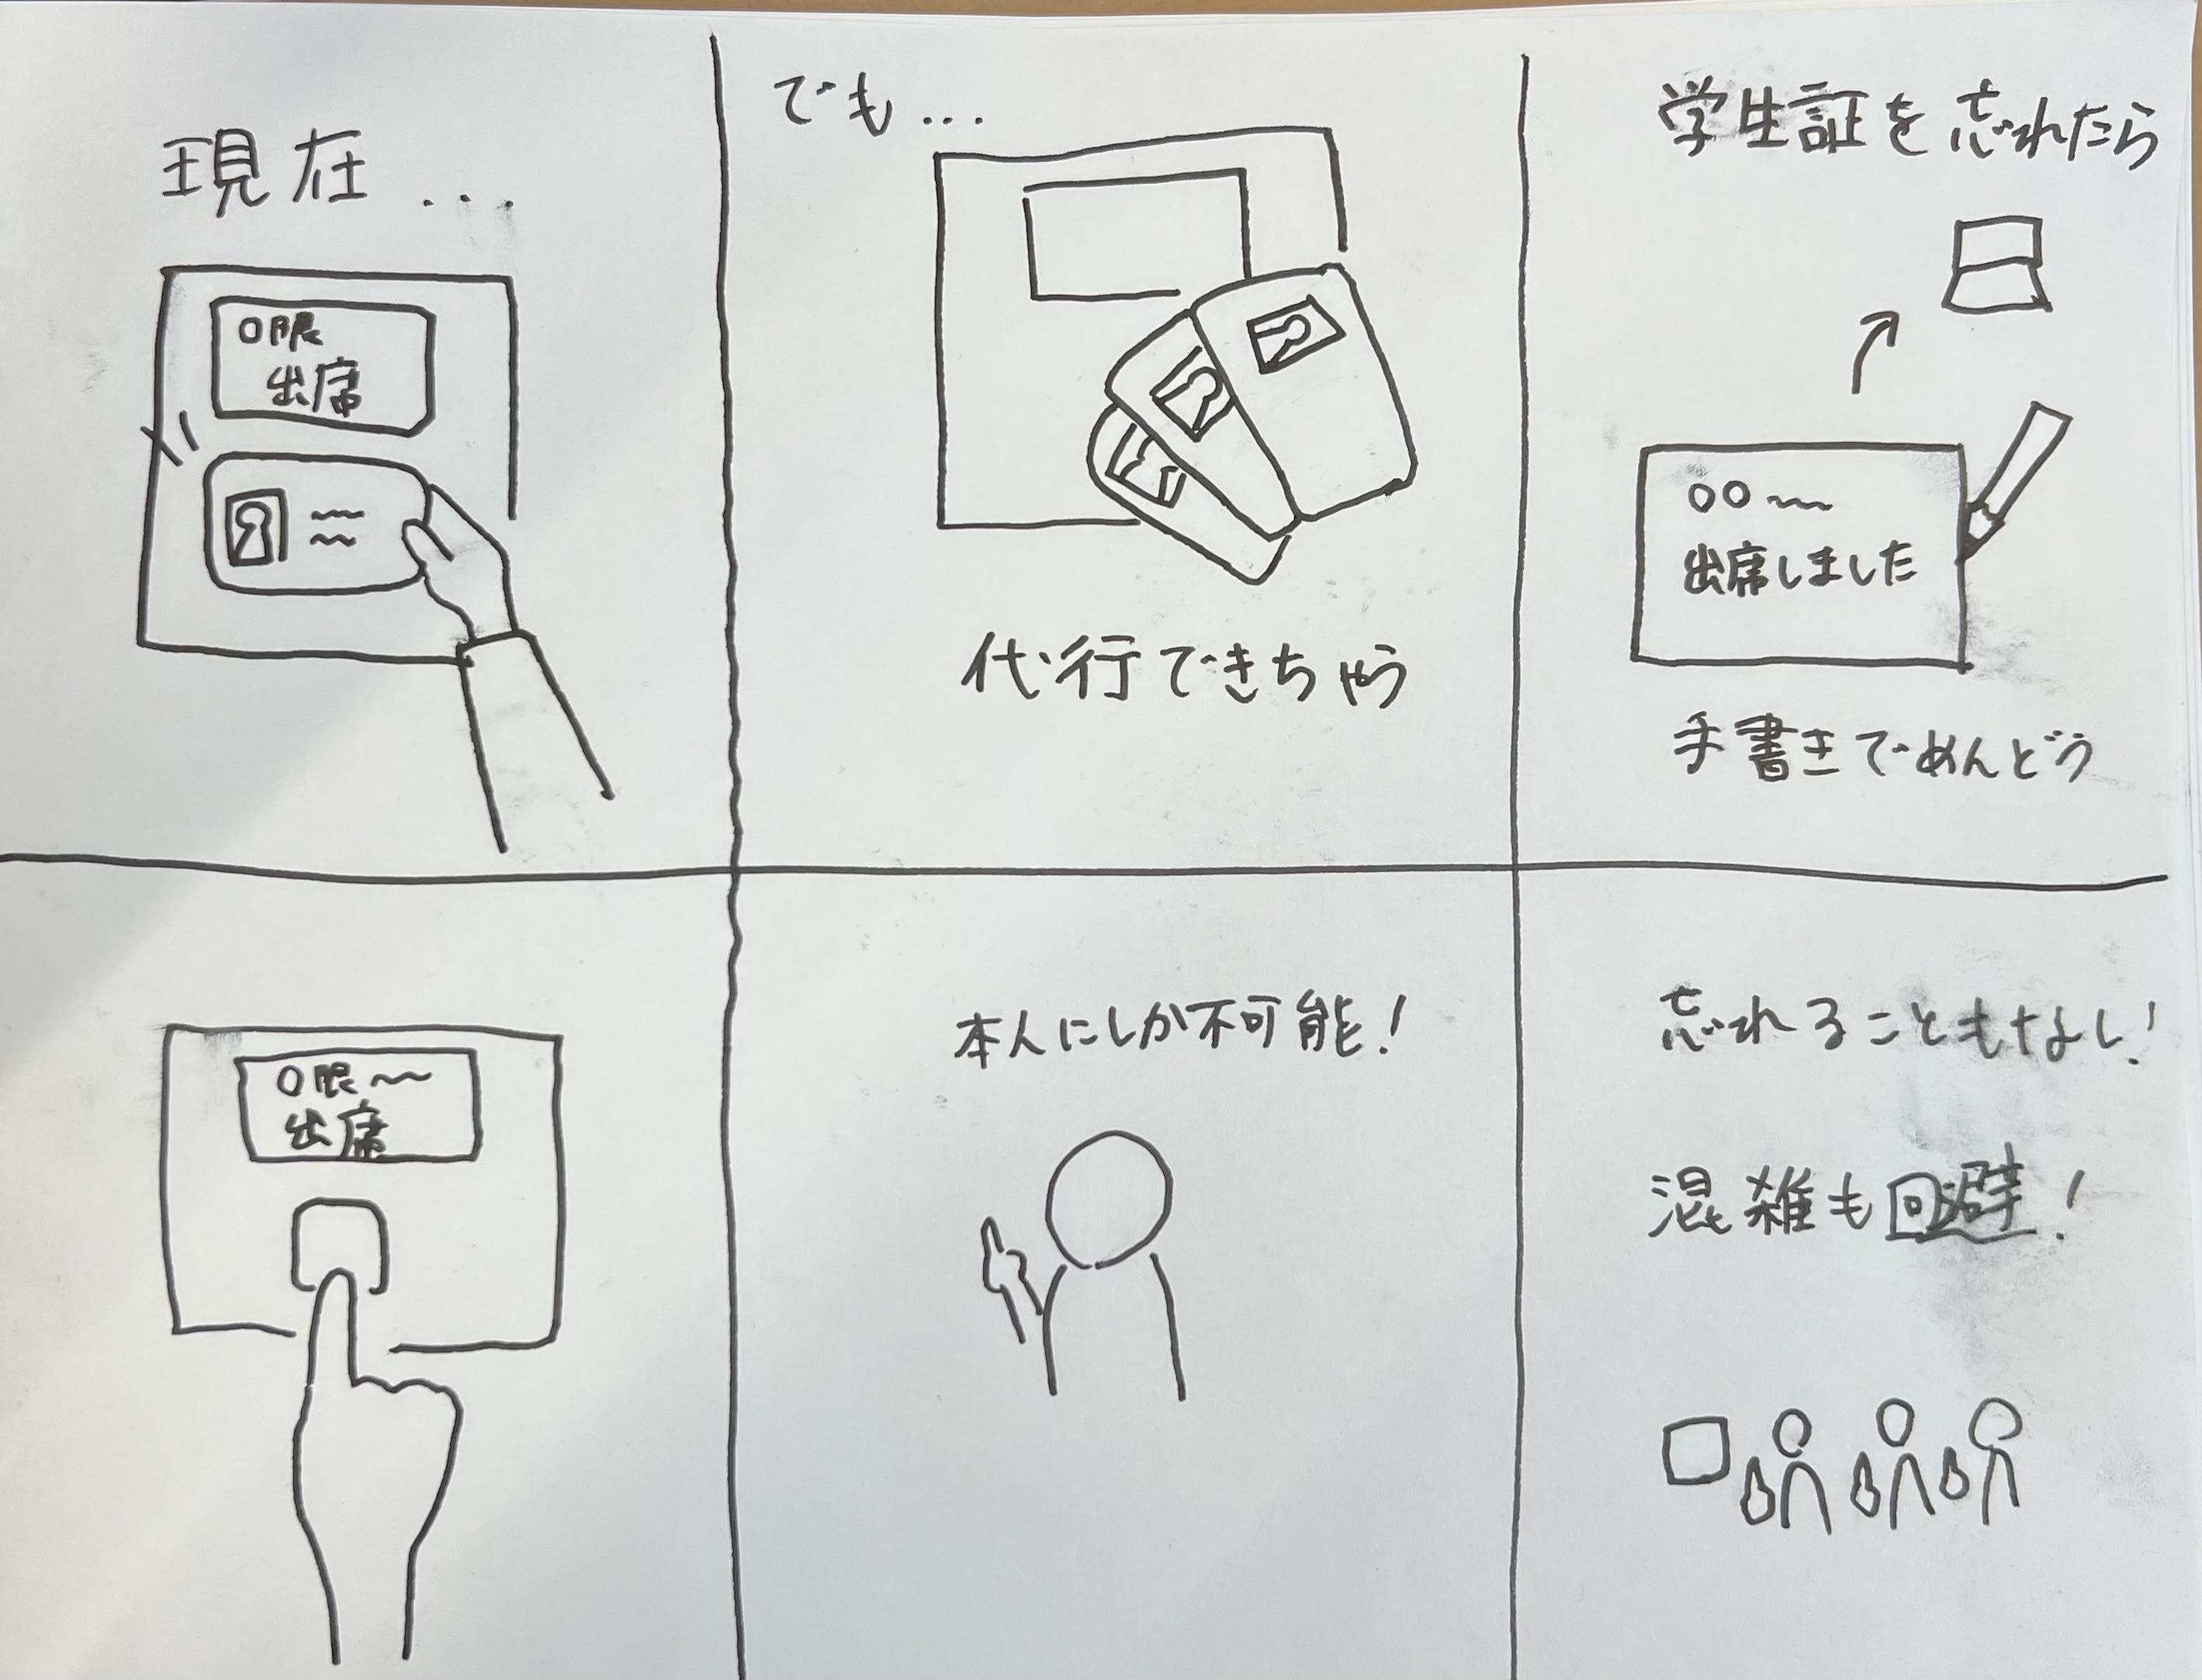 現在...
〇限
出席
でも...
代行できちゃう
学生証を忘れたら
〇〇〜
出席しました
手書きでめんどう
〇限〜
出席
本人にしか不可能!
忘れることもなし!
混雑も回避!